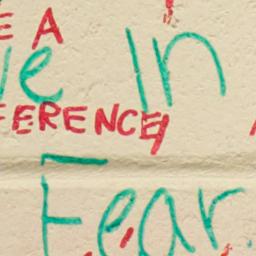 E A
e In
FERENCE!
Fear